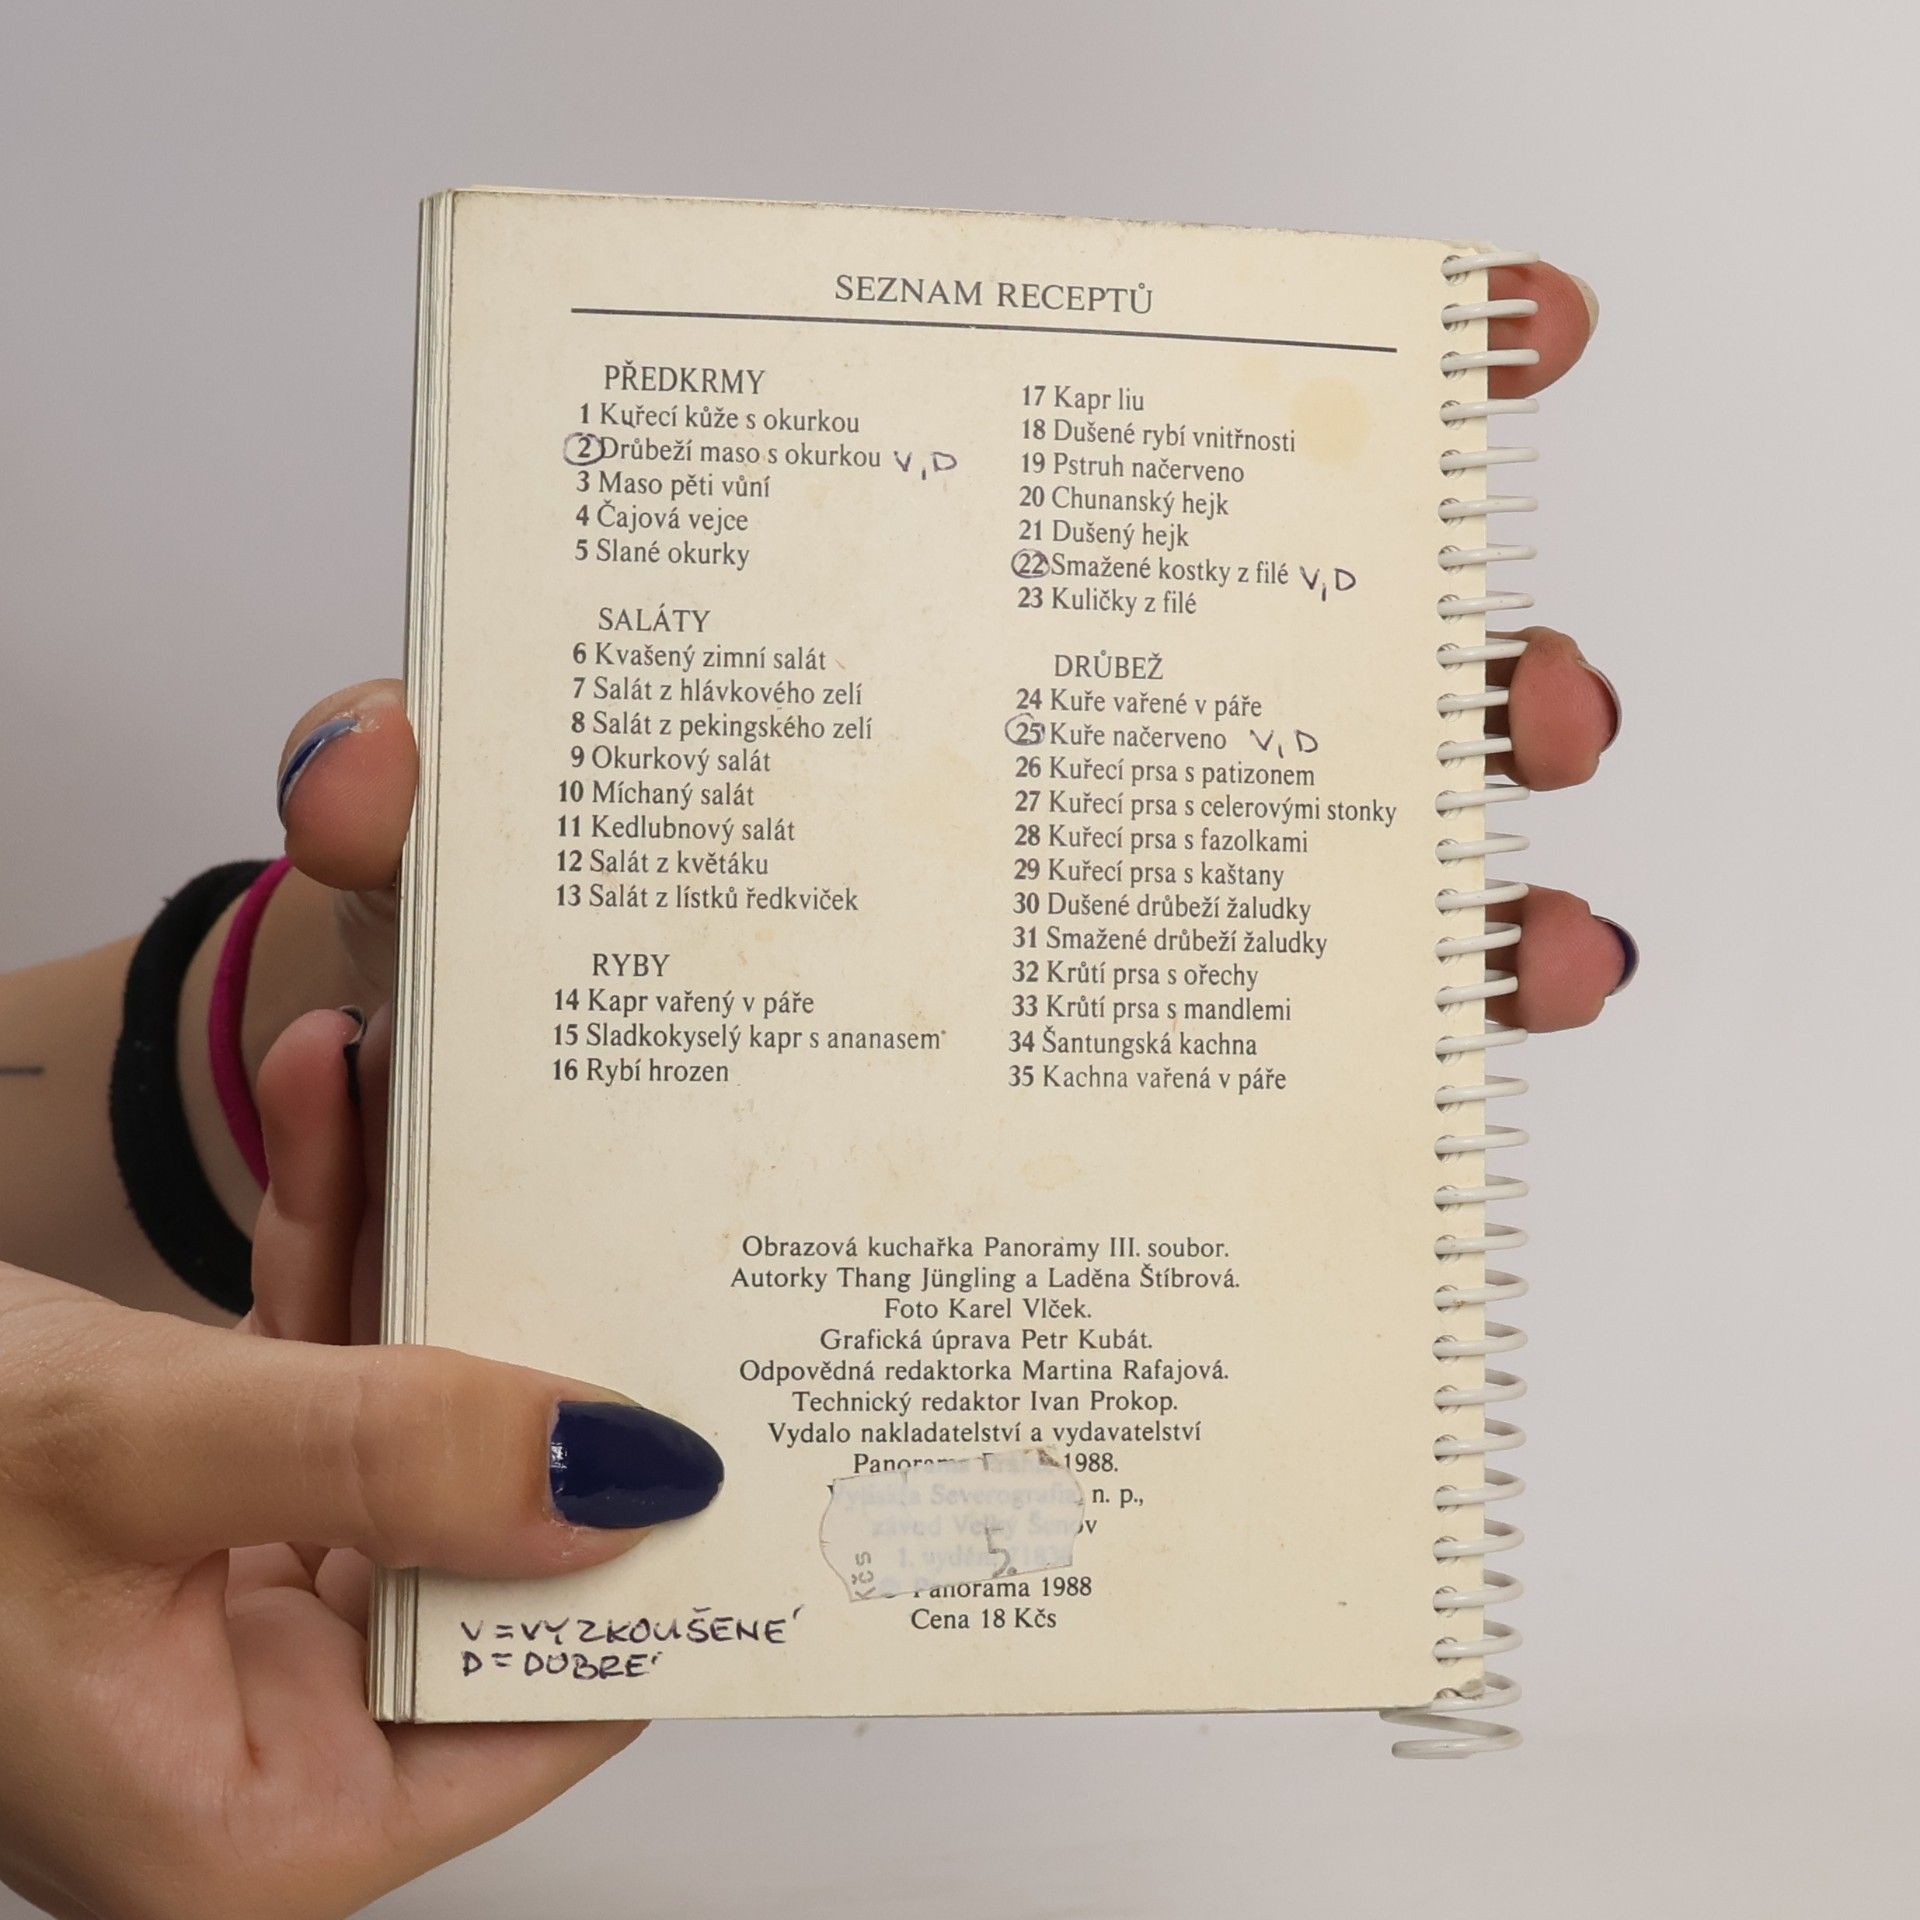 SEZNAM RECEPTŮ
PŘEDKRMY
1 Kuřecí kůže s okurkou
2 Drůbeží maso s okurkou V, D
3 Maso pěti vůní
4 Čajová vejce
5 Slané okurky
SALÁTY
6 Kvašený zimní salát
7 Salát z hlávkového zelí
8 Salát z pekingského zelí
9 Okurkový salát
10 Míchaný salát
11 Kedlubnový salát
12 Salát z květáku
13 Salát z lístků ředkviček
RYBY
14 Kapr vařený v páře
15 Sladkokyselý kapr s ananasem
16 Rybí hrozen
17 Kapr liu
18 Dušené rybí vnitřnosti
19 Pstruh načerveno
20 Chunanský hejk
21 Dušený hejk
22 Smažené kostky z filé V, D
23 Kuličky z filé
DRŮBEŽ
24 Kuře vařené v páře
25 Kuře načerveno V, D
26 Kuřecí prsa s patizonem
27 Kuřecí prsa s celerovými stonky
28 Kuřecí prsa s fazolkami
29 Kuřecí prsa s kaštany
30 Dušené drůbeží žaludky
31 Smažené drůbeží žaludky
32 Krůtí prsa s ořechy
33 Krůtí prsa s mandlemi
34 Šantungská kachna
35 Kachna vařená v páře
Obrazová kuchařka Panoramy III. soubor.
Autorky Thang Jüngling a Laděna Štíbrová.
Foto Karel Vlček.
Grafická úprava Petr Kubát.
Odpovědná redaktorka Martina Rafajová.
Technický redaktor Ivan Prokop.
Vydalo nakladatelství a vydavatelství
Panorama 1988.
Severografia, n. p.,
závod Velký Šenov
1. vydání
Kčs 5.
© Panorama 1988
Cena 18 Kčs
V = VYZKOUŠENÉ
D = DOBRÉ